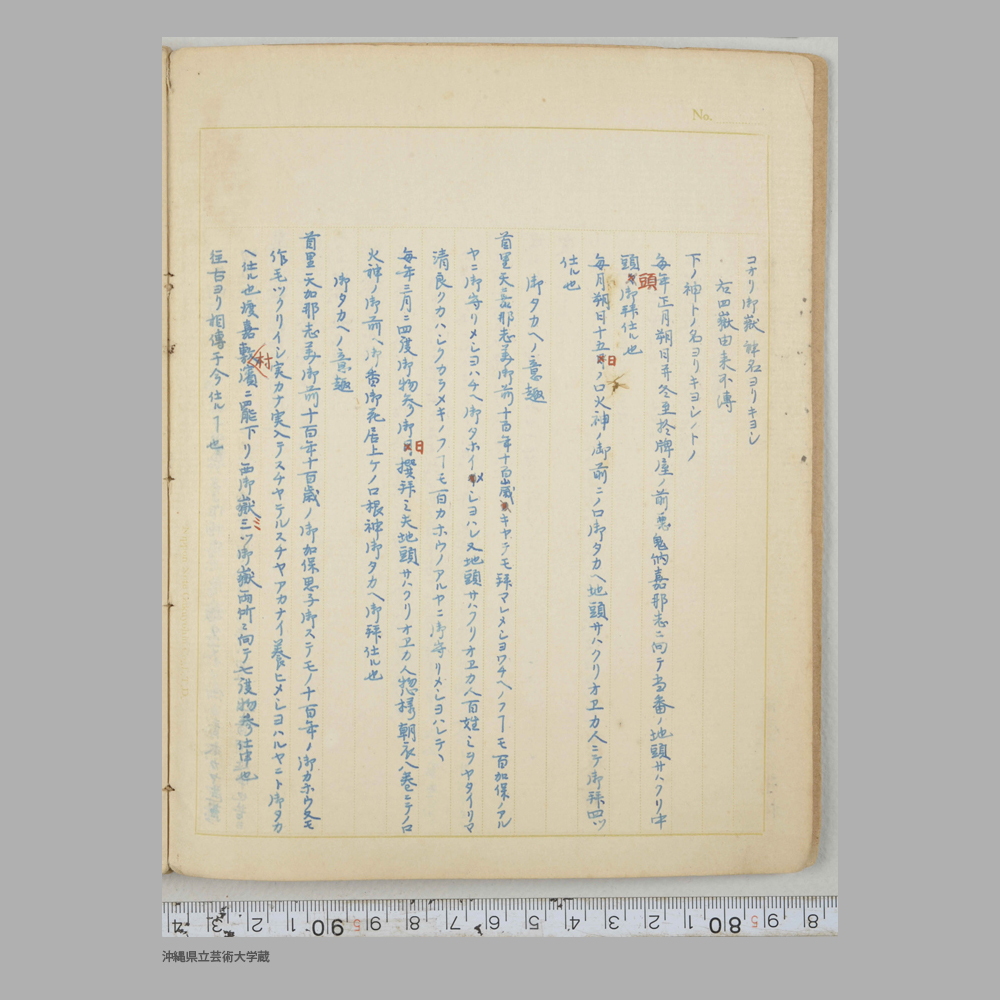 No.
コオリ御嶽 神名ヨリキヨシ
右四嶽由来不傳
下ノ神トノ名ヨリキヨシノトノ
毎年正月朔日并冬至於牌座ノ前 鬼納嘉那志ニ向テ当番ノ地頭サハクリ中
頭御拝仕ル也
頭
毎月朔日十五日ノロ火神ノ御前ニノロ御タカヘ地頭サハクリオヱカ人ニテ御拝四ツ
仕ル也
御タカヘノ意趣
首里天嘉那志美御前十百年十百歳キヤテモ拝マレメシヨワチヘノフーモ百加保ノアル
ヤニ御守リメシヨハチヘ御タホイメシヨハレ又地頭サハクリオヱカ人百姓ミヲヤタイリマ
清良クカハシクカラメキノフーモ百カホウノアルヤニ御守リメシヨハレテヽ
毎年三月ニ四度御物参御日撰拝ミ夫地頭サハクリオヱカ人惣様朝衣八巻ニテノロ
火神ノ御前ヘ御香御花居上ケノロ根神御タカヘ御拝仕ル也
御タカヘノ意趣
首里天加那志美御前十百年十百歳ノ御加保思子御ステモノ十百年ノ御カホウ久モ
作毛ツクリイシ実カナ実入テスチヤテルスチヤアカナイ養ヒメシヨハルヤニト御タカ
ヘ仕ル也渡嘉敷濱ニ罷下リ西御嶽三ツ御嶽両所ニ向テ七度物参仕申也
村
往古ヨリ相傳于今仕ルヿ也
沖縄県立芸術大学蔵